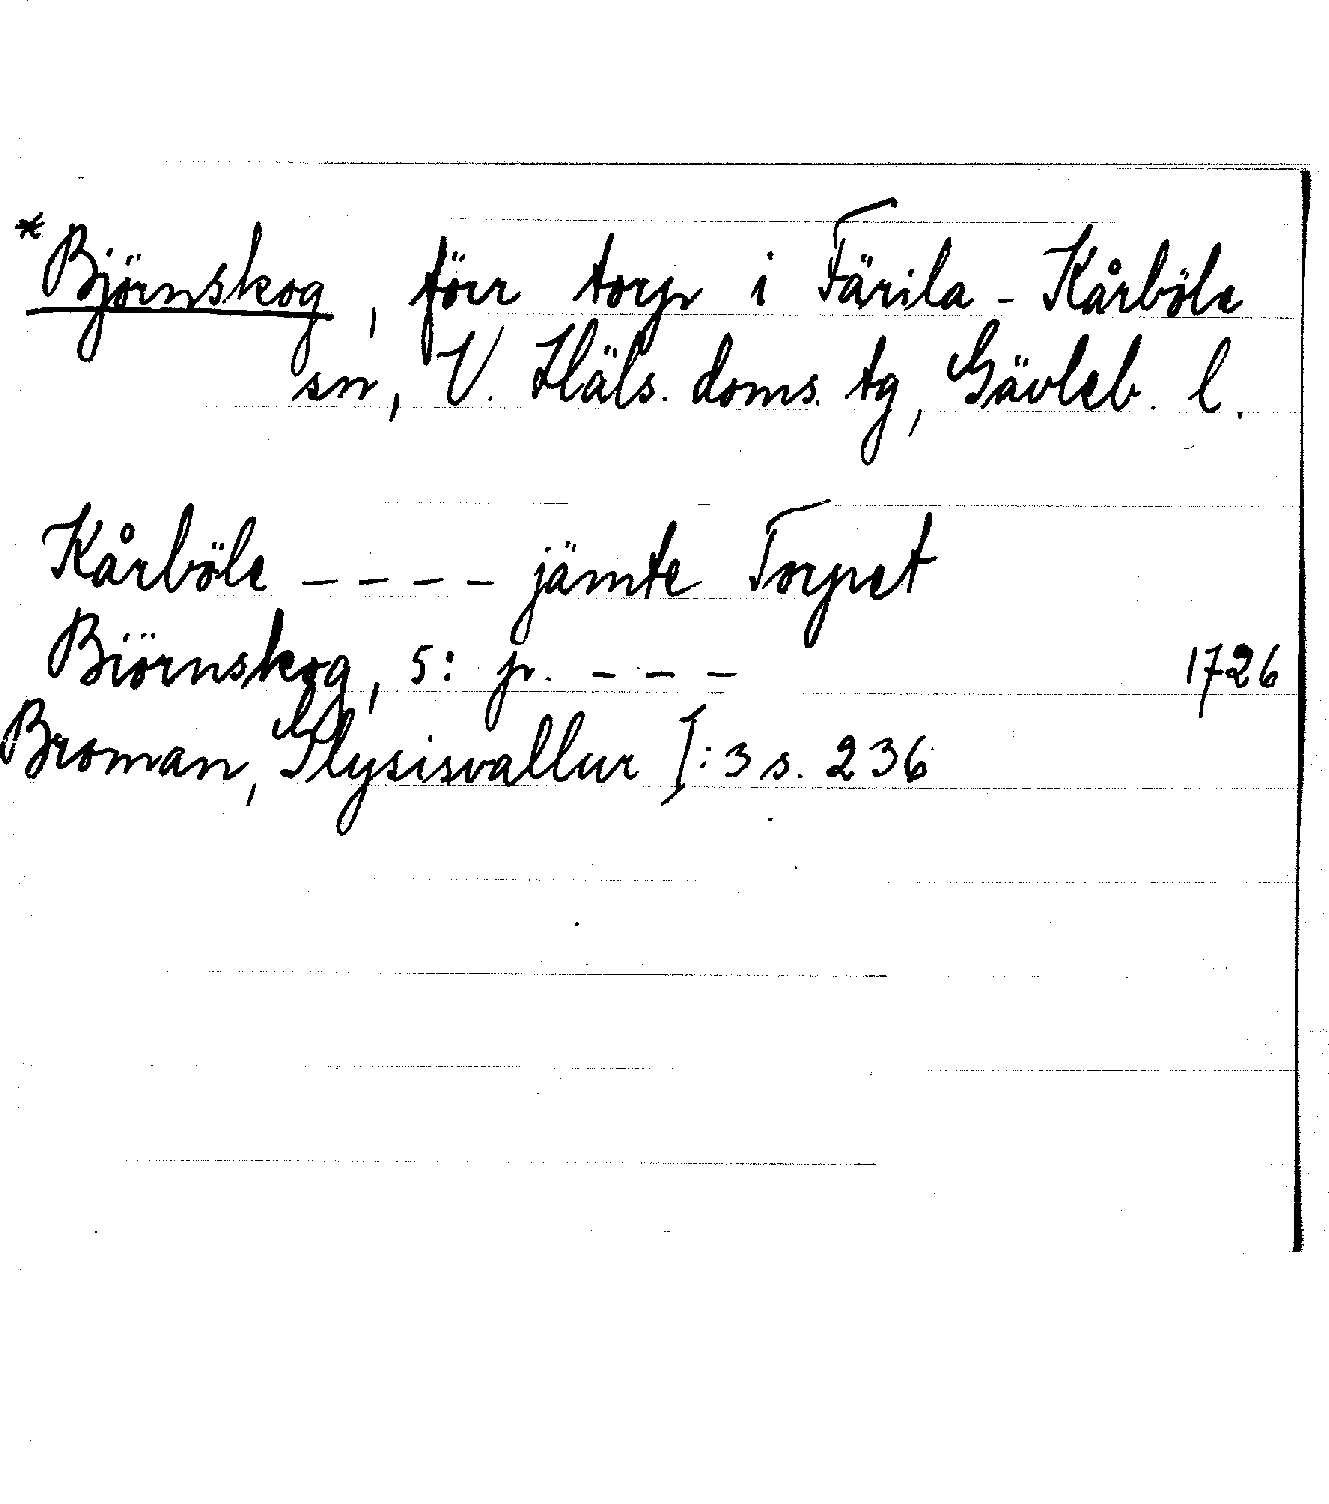 *Björnskog, förr torp i Färila - Kårböle
sn, V. Häls. doms. tg, Gävleb. l.
Kårböle - - - - jämte Torpet
Biörnskog, 5: p. - - - 1726
Broman, Glysisvallur I:3 s. 236